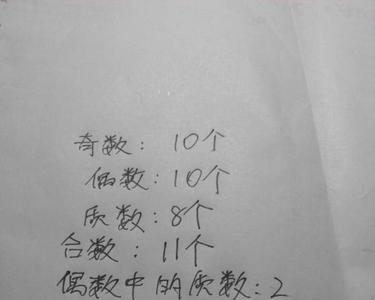 奇数: 10个
偶数: 10个
质数: 8个
合数: 11个
偶数中的质数: 2